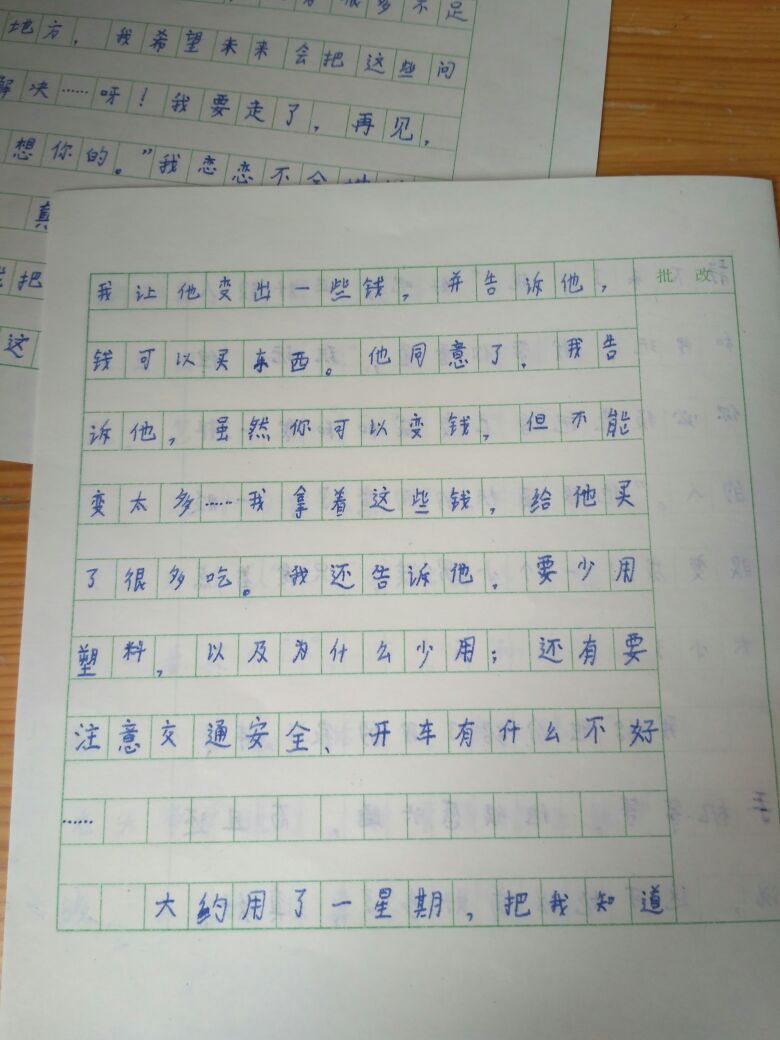 很多不足
地方，我希望未来会把这些问
解决……呀！我要走了，再见，
想你的。”我恋恋不舍
真
把
这
批改
我让他变出一些钱，并告诉他，
钱可以买东西。他同意了．我告
诉他，虽然你可以变钱，但不能
变太多……我拿着这些钱，给他买
了很多吃。我还告诉他．要少用
塑料，以及为什么少用；还有要
注意交通安全、开车有什么不好
……
大约用了一星期，把我知道